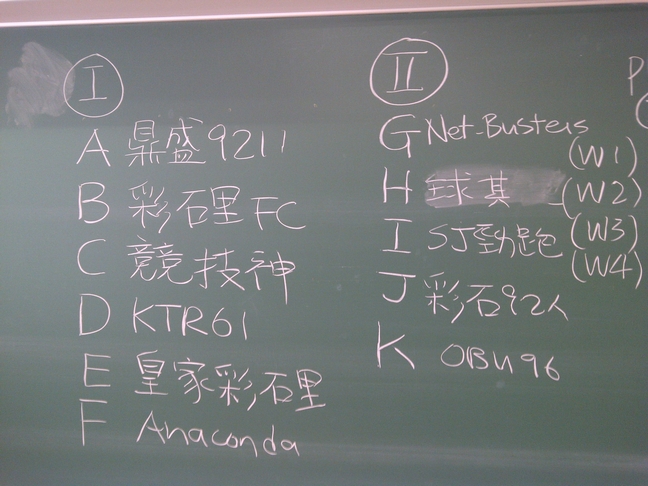 I
A 鼎盛9211
B 彩石里FC
C 競技神
D KTR61
E 皇家彩石里
F Anaconda
II
G Net-Busters
(W1)
H 球其
(W2)
I SJ勁跑
(W3)
(W4)
J 彩石92人
K OBU96
P